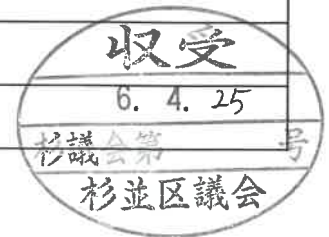 収受
6. 4. 25
杉議会第 号
杉並区議会